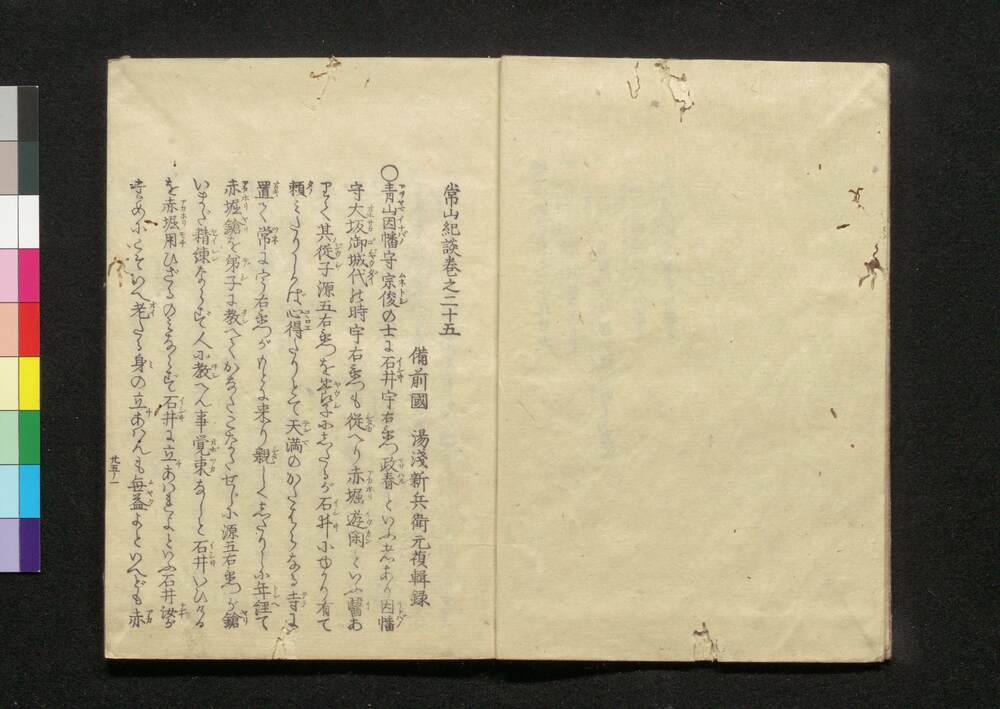 常山紀談巻之二十五
備前國 湯淺新兵衛元禎輯録
○青山因幡守宗俊の士に石井宇右衛門政春といふ者あり因幡
守大坂御城代の時宇右衛門も従へり赤堀遊閑といふ醫あ
りて其従子源五右衛門を養子にしたるが石井にゆかり有て
頼みたりしかば心得たりとて天満のかたはらなる寺に
置て常に宇右衛門がもとに来り親しくしたりしに年經て
赤堀鎗を弟子に教へて
いまだ精錬ならず人に教へん事覚束なしと石井いひける
を赤堀用ひざるのみならず石井に立あはれよといふ石井汝が
為めにこそいへ老たる身の立あはんも無益よといへども赤
廿五ノ一